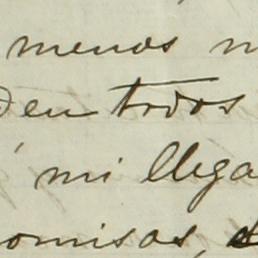 menos
den todos
mi llega
omisos,